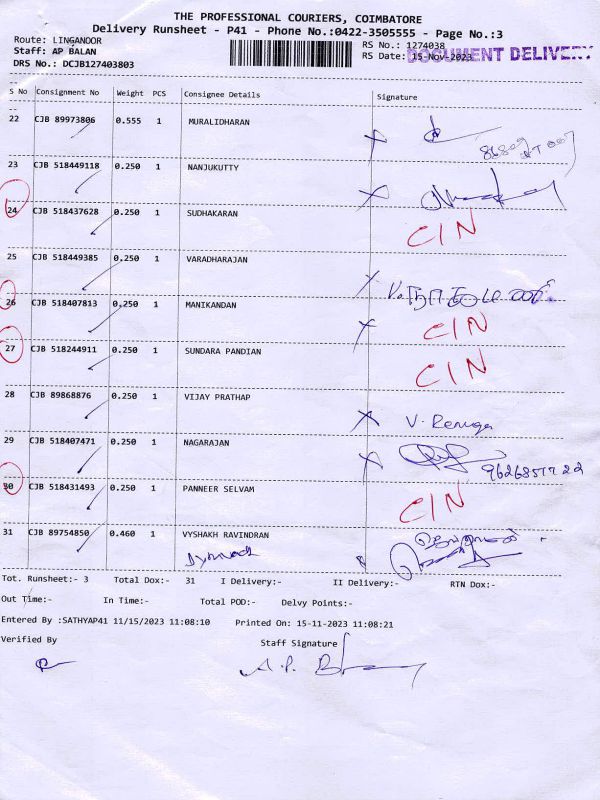 THE PROFESSIONAL COURIERS, COIMBATORE
Delivery Runsheet - P41 - Phone No.:0422-3505555 - Page No.:3
Route: LINGANOOR
RS No.: 1274038
Staff: AP BALAN
RS Date: 15-Nov-2023
DOCUMENT DELIVERY
DRS No.: DCJB127403803
S No Consignment No Weight PCS Consignee Details Signature
22 CJB 89973806 0.555 1 MURALIDHARAN
23 CJB 518449118 0.250 1 NANJUKUTTY
24 CJB 518437628 0.250 1 SUDHAKARAN CIN
25 CJB 518449385 0.250 1 VARADHARAJAN
26 CJB 518407813 0.250 1 MANIKANDAN CIN
27 CJB 518244911 0.250 1 SUNDARA PANDIAN CIN
28 CJB 89868876 0.250 1 VIJAY PRATHAP V. Renuga
29 CJB 518407471 0.250 1 NAGARAJAN
30 CJB 518431493 0.250 1 PANNEER SELVAM CIN
31 CJB 89754850 0.460 1 VYSHAKH RAVINDRAN
Tot. Runsheet:- 3 Total Dox:- 31 I Delivery:- II Delivery:- RTN Dox:-
Out Time:- In Time:- Total POD:- Delvy Points:-
Entered By :SATHYAP41 11/15/2023 11:08:10 Printed On: 15-11-2023 11:08:21
Verified By Staff Signature